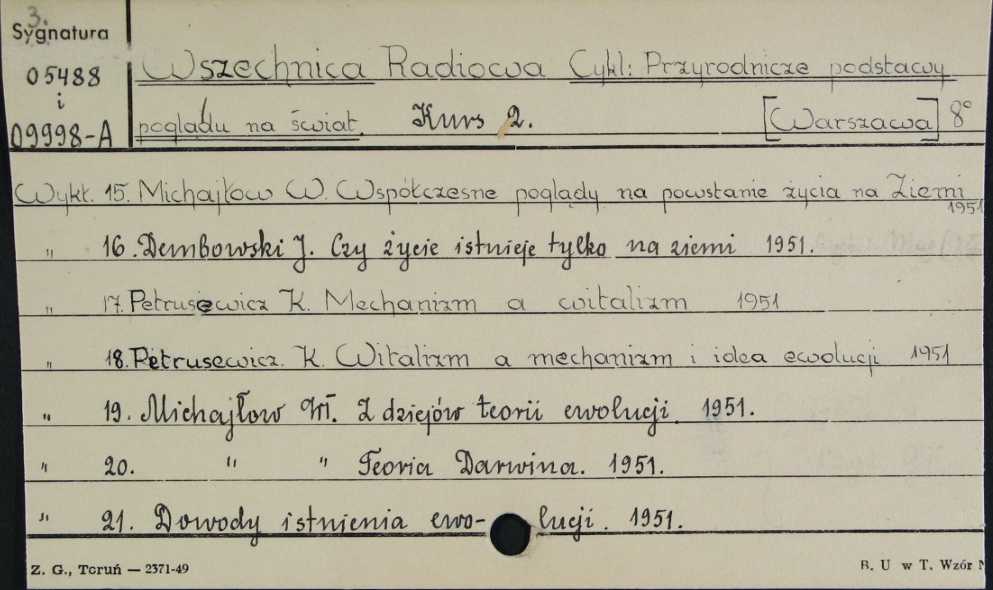 3.
Sygnatura
05488
i
09998-A
Wszechnica Radiowa Cykl: Przyrodnicze podstawy
poglądu na świat. Kurs 2. [Warszawa] 8°
Wykł. 15. Michajłow W. Współczesne poglądy na powstanie życia na Ziemi
1951
" 16. Dembowski J. Czy życie istnieje tylko na ziemi 1951.
" 17. Petrusewicz K. Mechanizm a witalizm 1951
" 18. Petrusewicz. K. Witalizm a mechanizm i idea ewolucji 1951
" 19. Michajłow Wł. Z dziejów teorii ewolucji. 1951.
" 20. " " Teoria Darwina. 1951.
" 21. Dowody istnienia ewo- lucji. 1951.
Z. G., Toruń — 2371-49
B. U w T. Wzór N